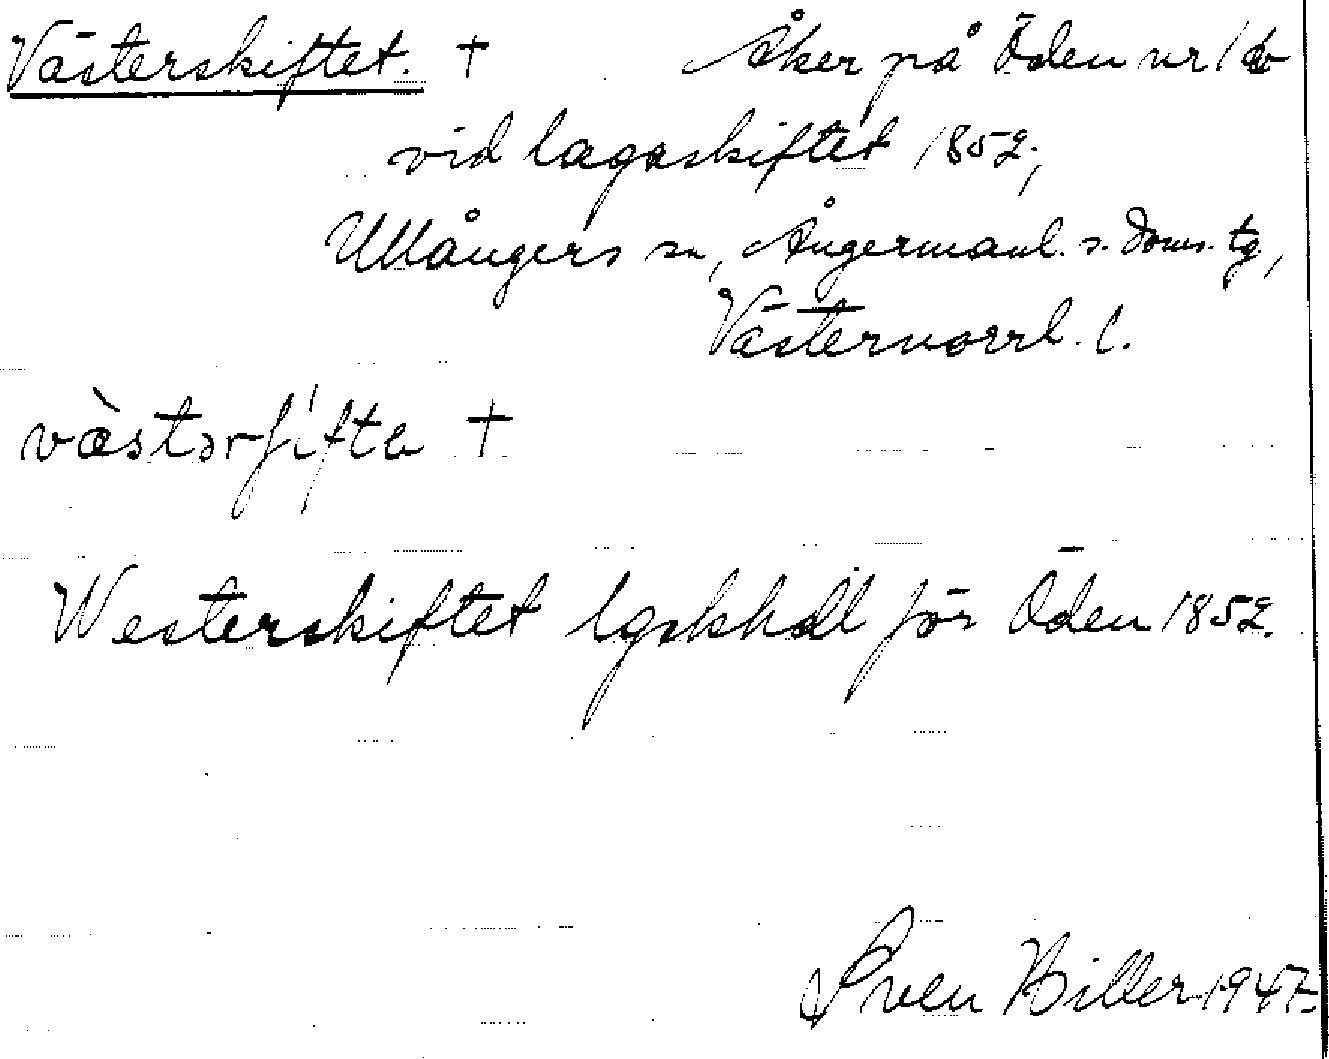 Västerskiftet. + Åker på Öden nr 1
vid lagaskiftet 1852;
Ullångers sn, Ångermanl. s. doms. tg,
Västernorrl. l.
vä̀stərʃifta +
Westerskiftet lgskhdl för Öden 1852.
Sven Hiller 1947.